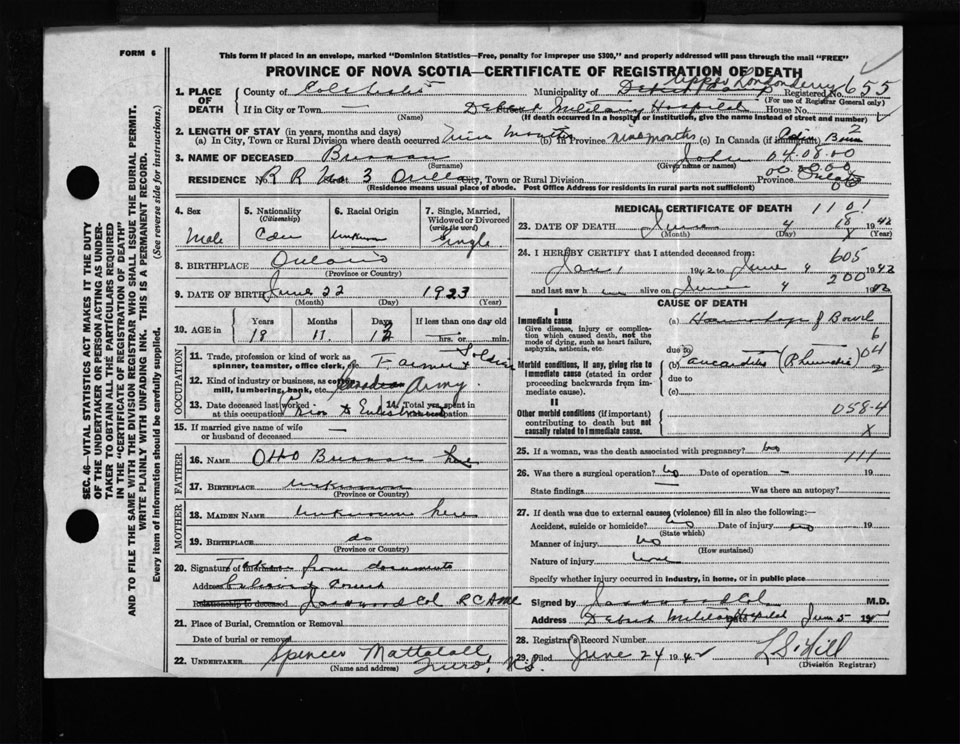 FORM 6
This form if placed in an envelope, marked "Dominion Statistics—Free, penalty for improper use $300," and properly addressed will pass through the mail "FREE"
PROVINCE OF NOVA SCOTIA—CERTIFICATE OF REGISTRATION OF DEATH
1. PLACE OF DEATH County of Colchester Municipality of Upper Londonderry Registered No. 655
(For use of Registrar General only)
If in City or Town — (Name) Debert Military Hospital House No.
(If death occurred in a hospital or institution, give the name instead of street and number)
2. LENGTH OF STAY (in years, months and days)
(a) In City, Town or Rural Division where death occurred nine months (b) in Province nine months (c) in Canada (if immigrant) Born 2
3. NAME OF DECEASED (Surname) John (Given name or names) 04.08.00
RESIDENCE No. R R No 3 Orillia City, Town or Rural Division Province Ontario
(Residence means usual place of abode. Post Office Address for residents in rural parts not sufficient)
4. Sex Male
5. Nationality (Citizenship) Cdn
6. Racial Origin unknown
7. Single, Married, Widowed or Divorced (write the word) single
8. BIRTHPLACE Ontario (Province or Country)
9. DATE OF BIRTH June 22 1923
(Month) (Day) (Year)
10. AGE in Years 18 Months 11 Days 12 If less than one day old hrs. or min.
OCCUPATION
11. Trade, profession or kind of work as spinner, teamster, office clerk, etc. Farmer + Soldier
12. Kind of industry or business, as cotton mill, lumbering, bank, etc. Canadian Army.
13. Date deceased last worked at this occupation Prior to Enlistment 14. Total yrs. spent in this occupation
15. If married give name of wife or husband of deceased —
FATHER
16. NAME Otto
17. BIRTHPLACE unknown
(Province or Country)
MOTHER
18. MAIDEN NAME unknown here
19. BIRTHPLACE do
(Province or Country)
20. Signature of Informant taken from documents
Address
Relationship to deceased Col RCAMC
21. Place of Burial, Cremation or Removal
Date of burial or removal
22. UNDERTAKER Spencer Mattatall Truro, N.S.
(Name and address)
MEDICAL CERTIFICATE OF DEATH 1101
23. DATE OF DEATH June 4 18 1942
(Month) (Day) (Year)
24. I HEREBY CERTIFY that I attended deceased from: 605
Jan 1 1942 to June 4 1942
and last saw h im alive on June 4 200 1942
CAUSE OF DEATH
I
Immediate cause
Give disease, injury or complication which caused death, not the mode of dying, such as heart failure, asphyxia, asthenia, etc.
(a) Haemorrhage of Bowel
due to
Morbid conditions, if any, giving rise to immediate cause (stated in order proceeding backwards from immediate cause).
(b) Pancarditis (Rheumatic) 04
due to
(c)
II
Other morbid conditions (if important) contributing to death but not causally related to immediate cause.
058-4
X
25. If a woman, was the death associated with pregnancy? no 111
26. Was there a surgical operation? no Date of operation — 19
State findings — Was there an autopsy?
27. If death was due to external causes (violence) fill in also the following:—
Accident, suicide or homicide? no Date of injury no 19
(State which)
Manner of injury no
(How sustained)
Nature of injury none
Specify whether injury occurred in industry, in home, or in public place
Signed by Col M.D.
Address Debert Military Hospital Jun 5 1942
28. Registrar's Record Number
29. Filed June 24 1942 L S Hill
(Division Registrar)
SEC. 46—VITAL STATISTICS ACT MAKES IT THE DUTY OF THE UNDERTAKER OR PERSON ACTING AS UNDERTAKER TO OBTAIN ALL THE PARTICULARS REQUIRED IN THE "CERTIFICATE OF REGISTRATION OF DEATH" AND TO FILE THE SAME WITH THE DIVISION REGISTRAR WHO SHALL ISSUE THE BURIAL PERMIT.
WRITE PLAINLY WITH UNFADING INK. THIS IS A PERMANENT RECORD.
Every item of information should be carefully supplied. (See reverse side for instructions.)